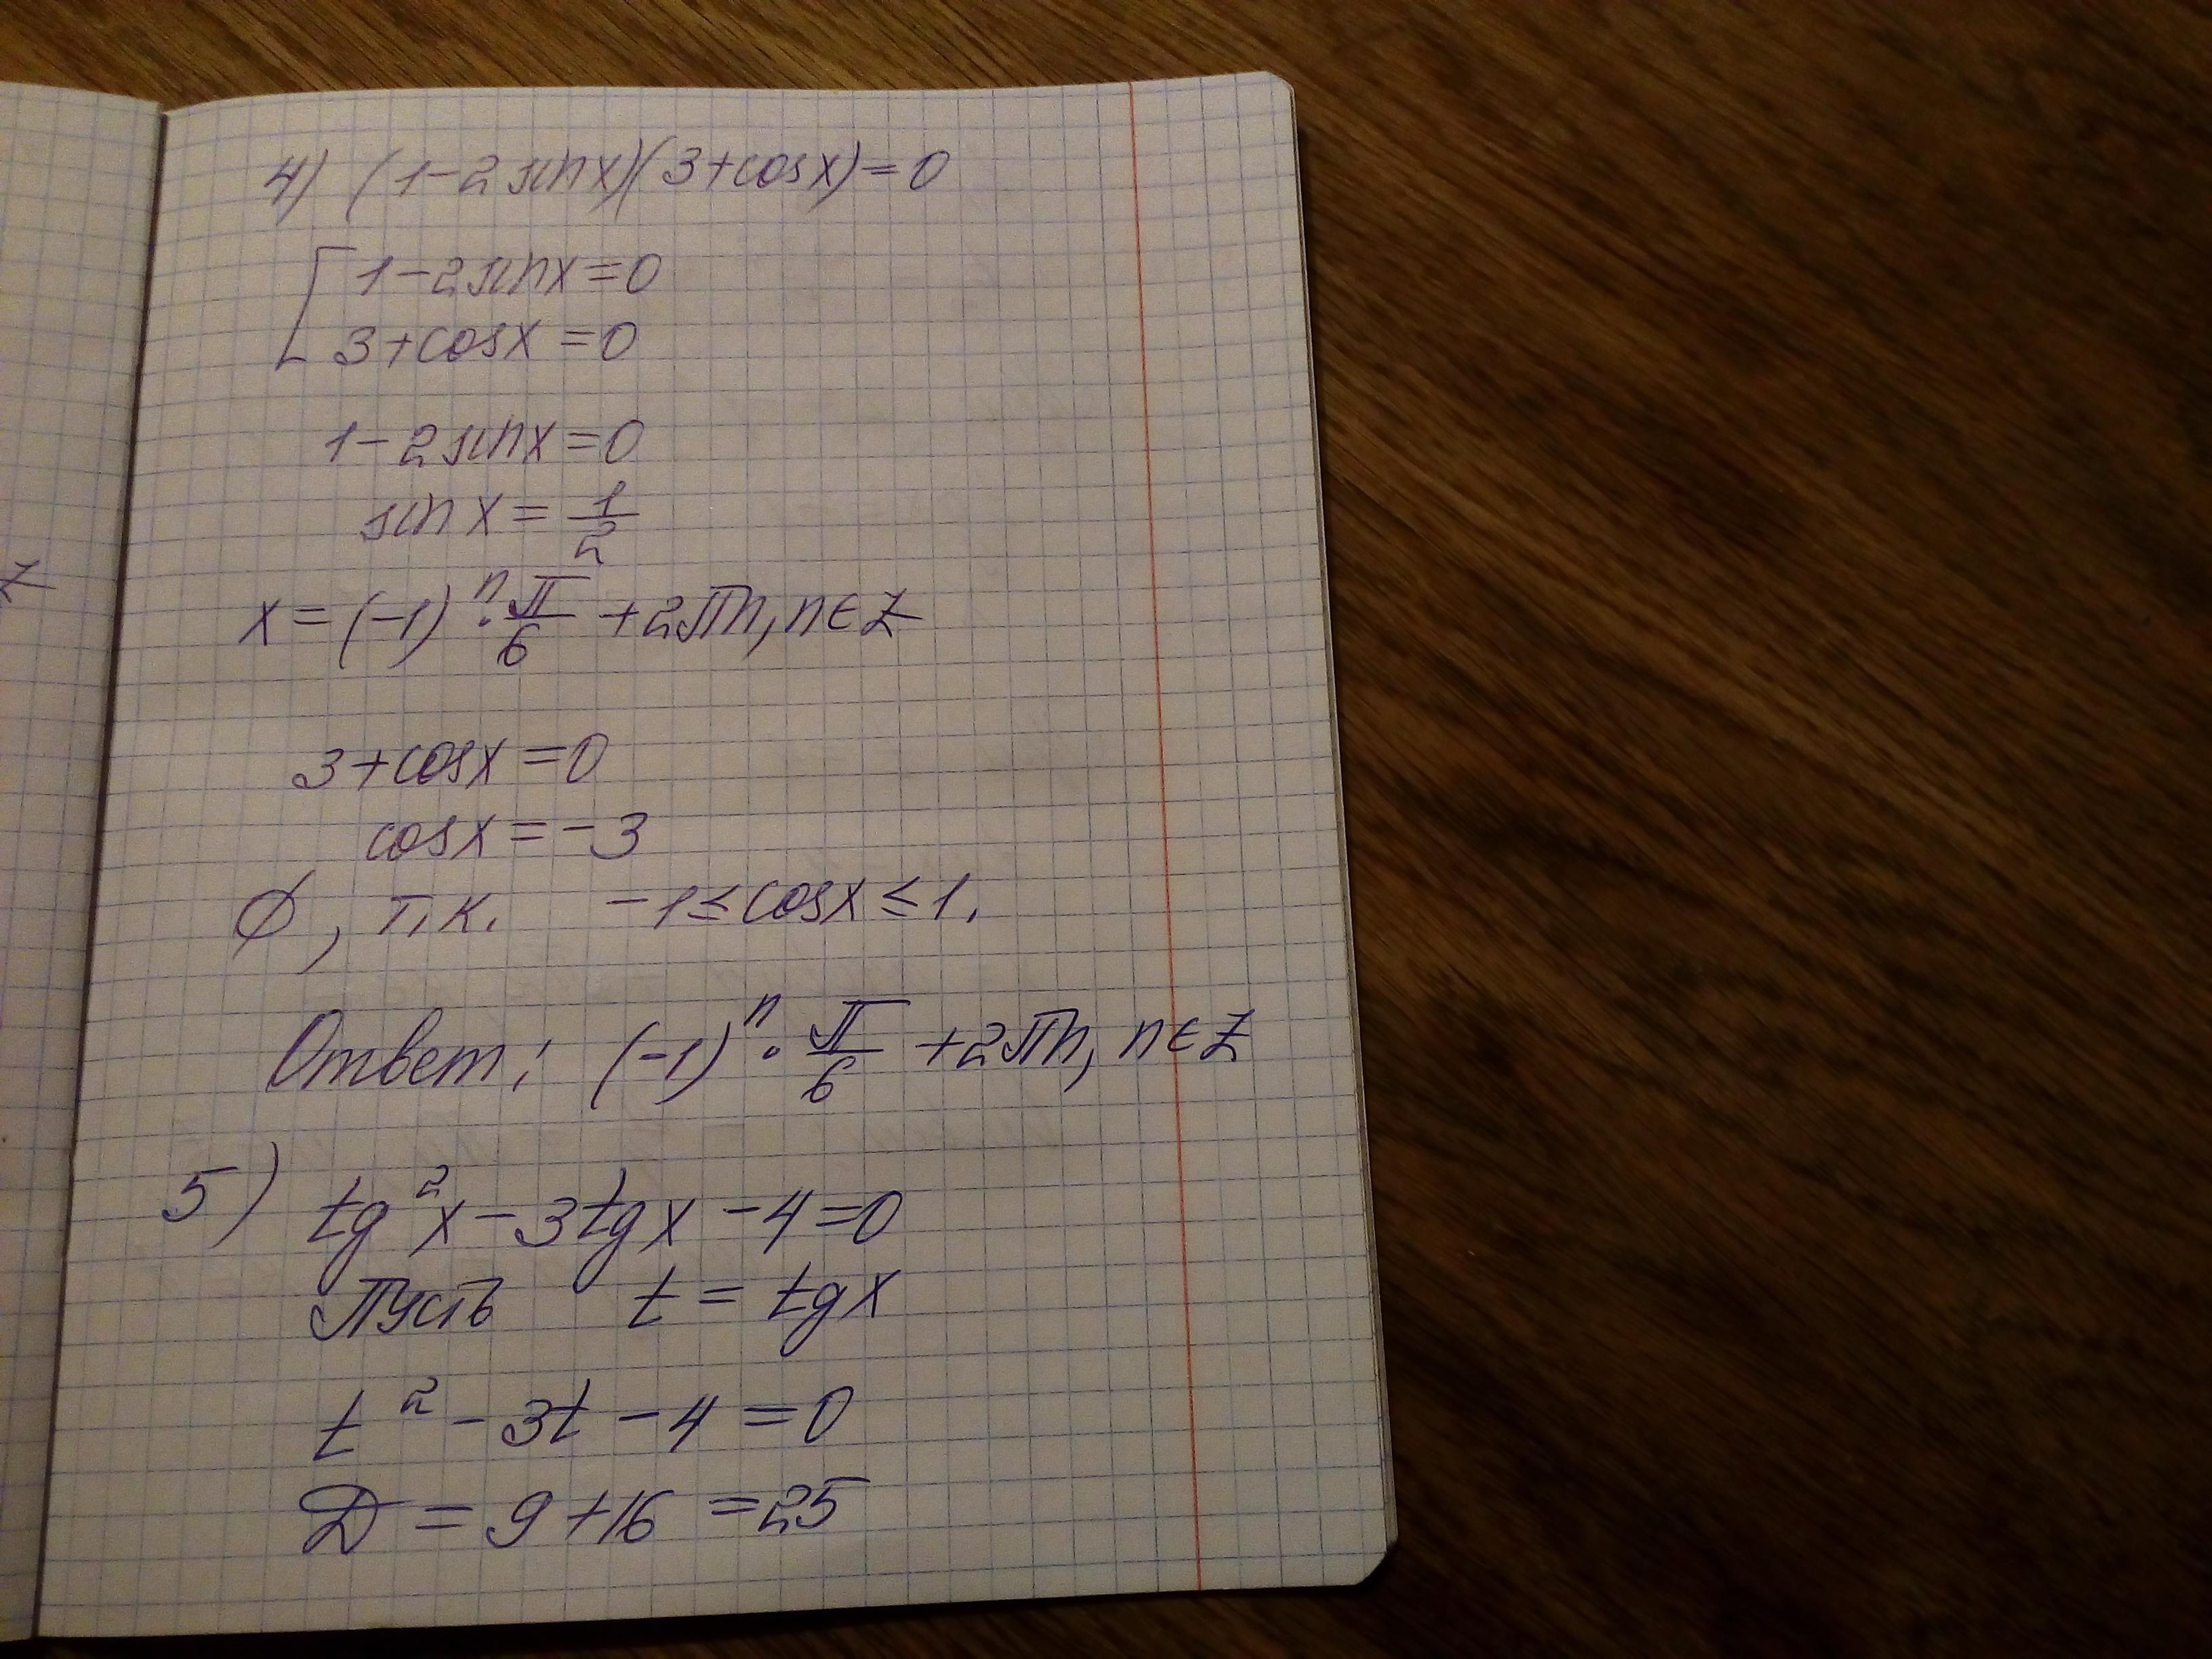 4) (1-2sinx)(3+cosx)=0
[1-2sinx=0
3+cosx=0
1-2sinx=0
sinx=1/2
x=(-1)^n·π/6+2πn, n∈Z
Z
3+cosx=0
cosx=-3
∅, т.к. -1≤cosx≤1.
Ответ: (-1)^n·π/6+2πn, n∈Z
5) tg²x-3tgx-4=0
Пусть t=tgx
t²-3t-4=0
Д=9+16=25